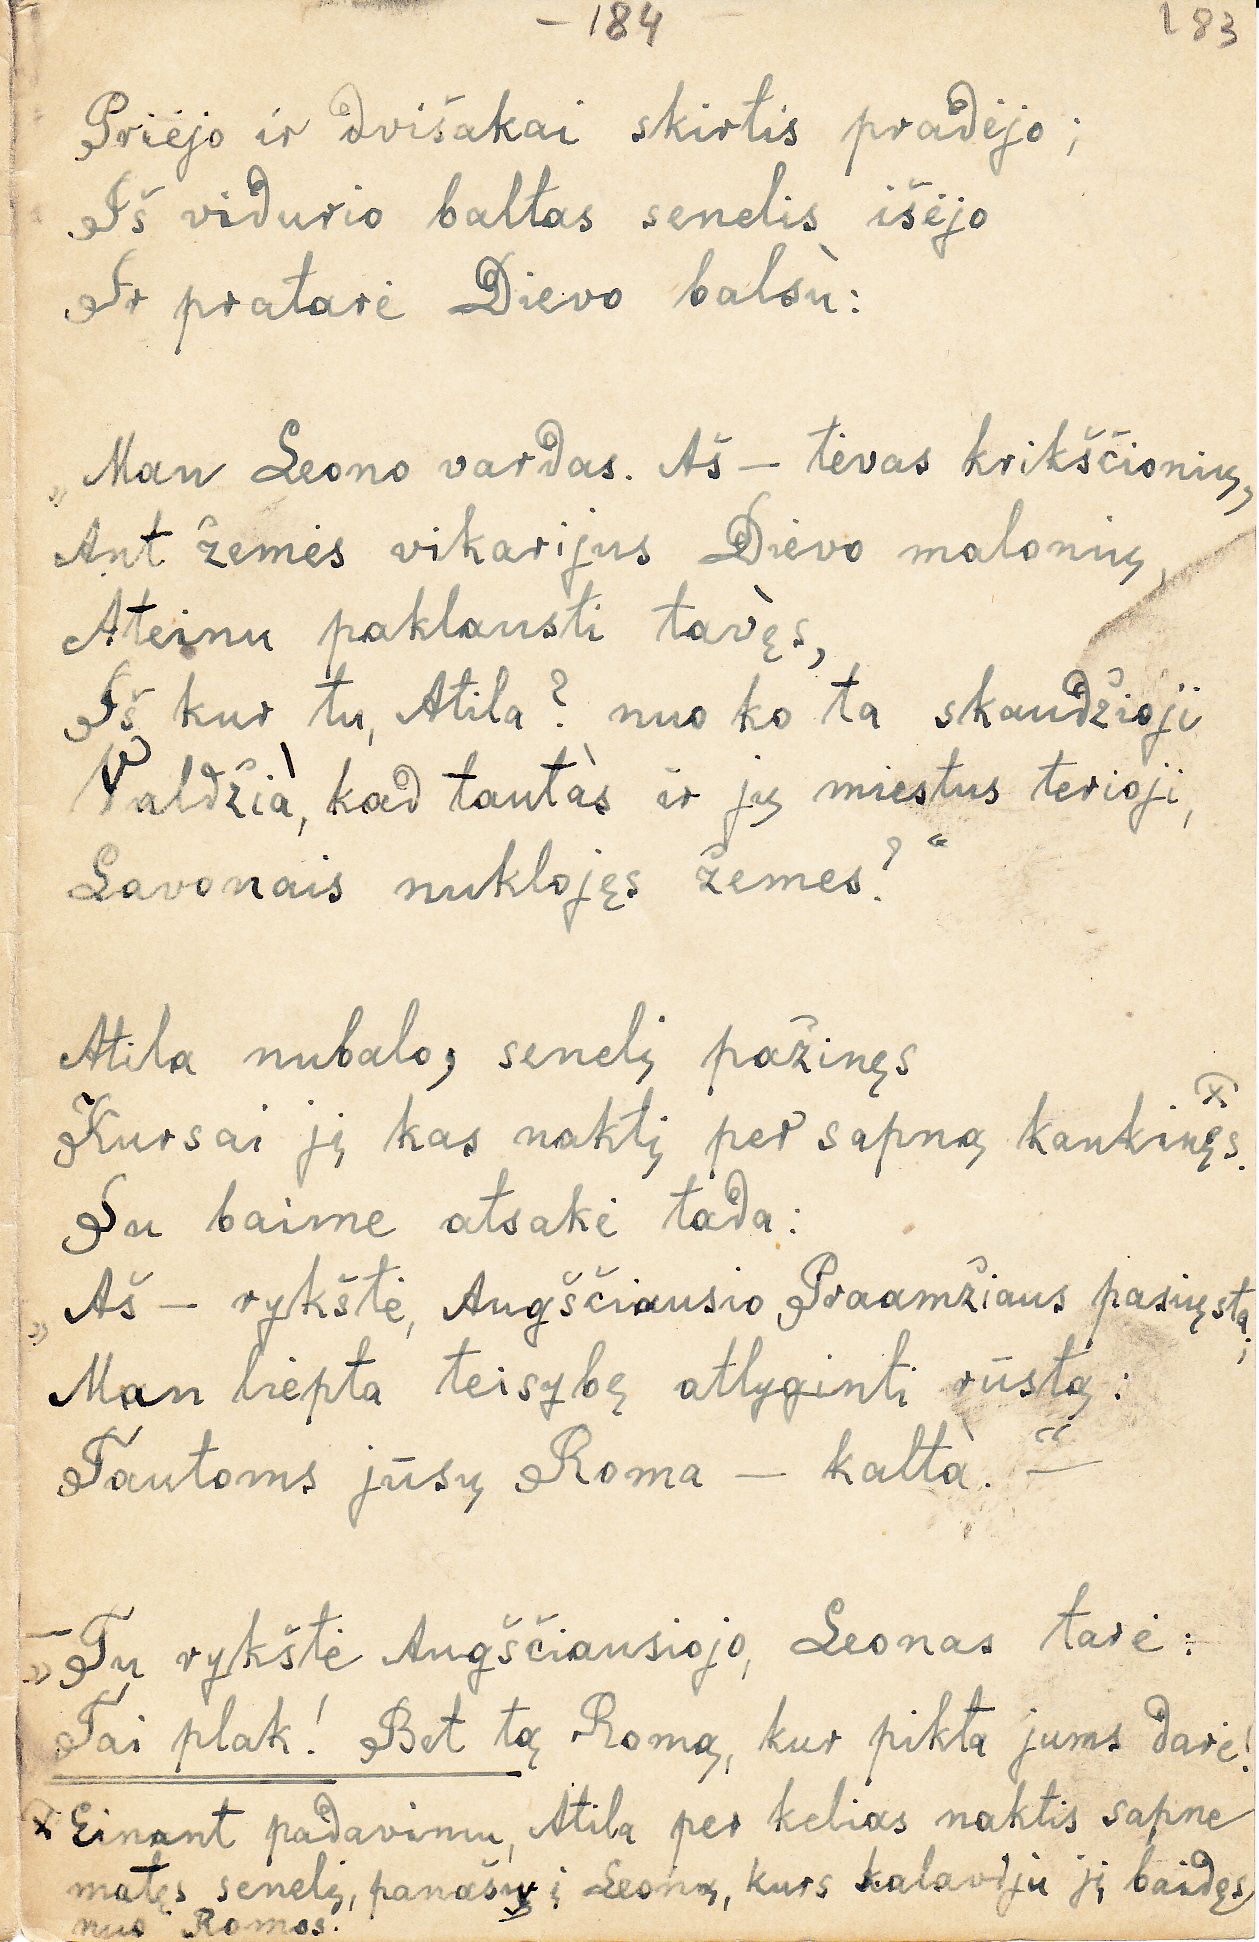 – 184
183
Priėjo ir dvišakai skirtis pradėjo;
Iš vidurio baltas senelis išėjo
Ir pratarė Dievo balsù:
„Man Leono vardas. Aš – tėvas krikščionių,
Ant žemės vikarijus Dievo malonių,
Ateinu paklausti tavę̀s,
Iš kur tu, Atila? nuo ko ta skaudžioji
Valdžià, kad tautàs ir jų miestus terioji,
Lavonais nuklojęs žemes?“
Atila nubalo, senelį pažinęs
Kursai jį kas naktį per sapną kankinęs. x)
Su baime atsakė tada:
„Aš – rykštė, Augščiausio Praamžiaus pasiųsta;
Man liepta teisybę atlyginti rūstą:
Tautoms jūsų Roma – kaltà.“ –
– „Tu rykštė Augščiausiojo, Leonas tarė:
Tai plak! Bet tą Romą, kur pikta jums darė!
x Einant padavimu, Atila per kelias naktis sapne
matęs senelį, panašų į Leoną, kurs kalaviju jį baidęs
nuo Romos.